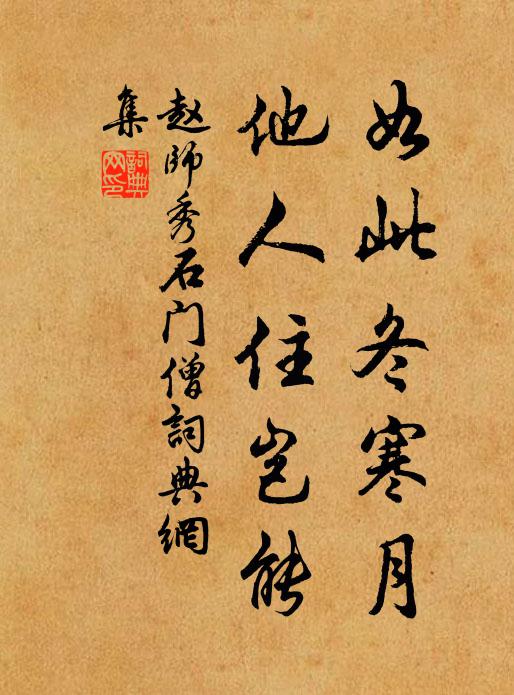 如此冬寒月
他人住岂能
赵師秀石门僧詞典網
集
詞典
网印